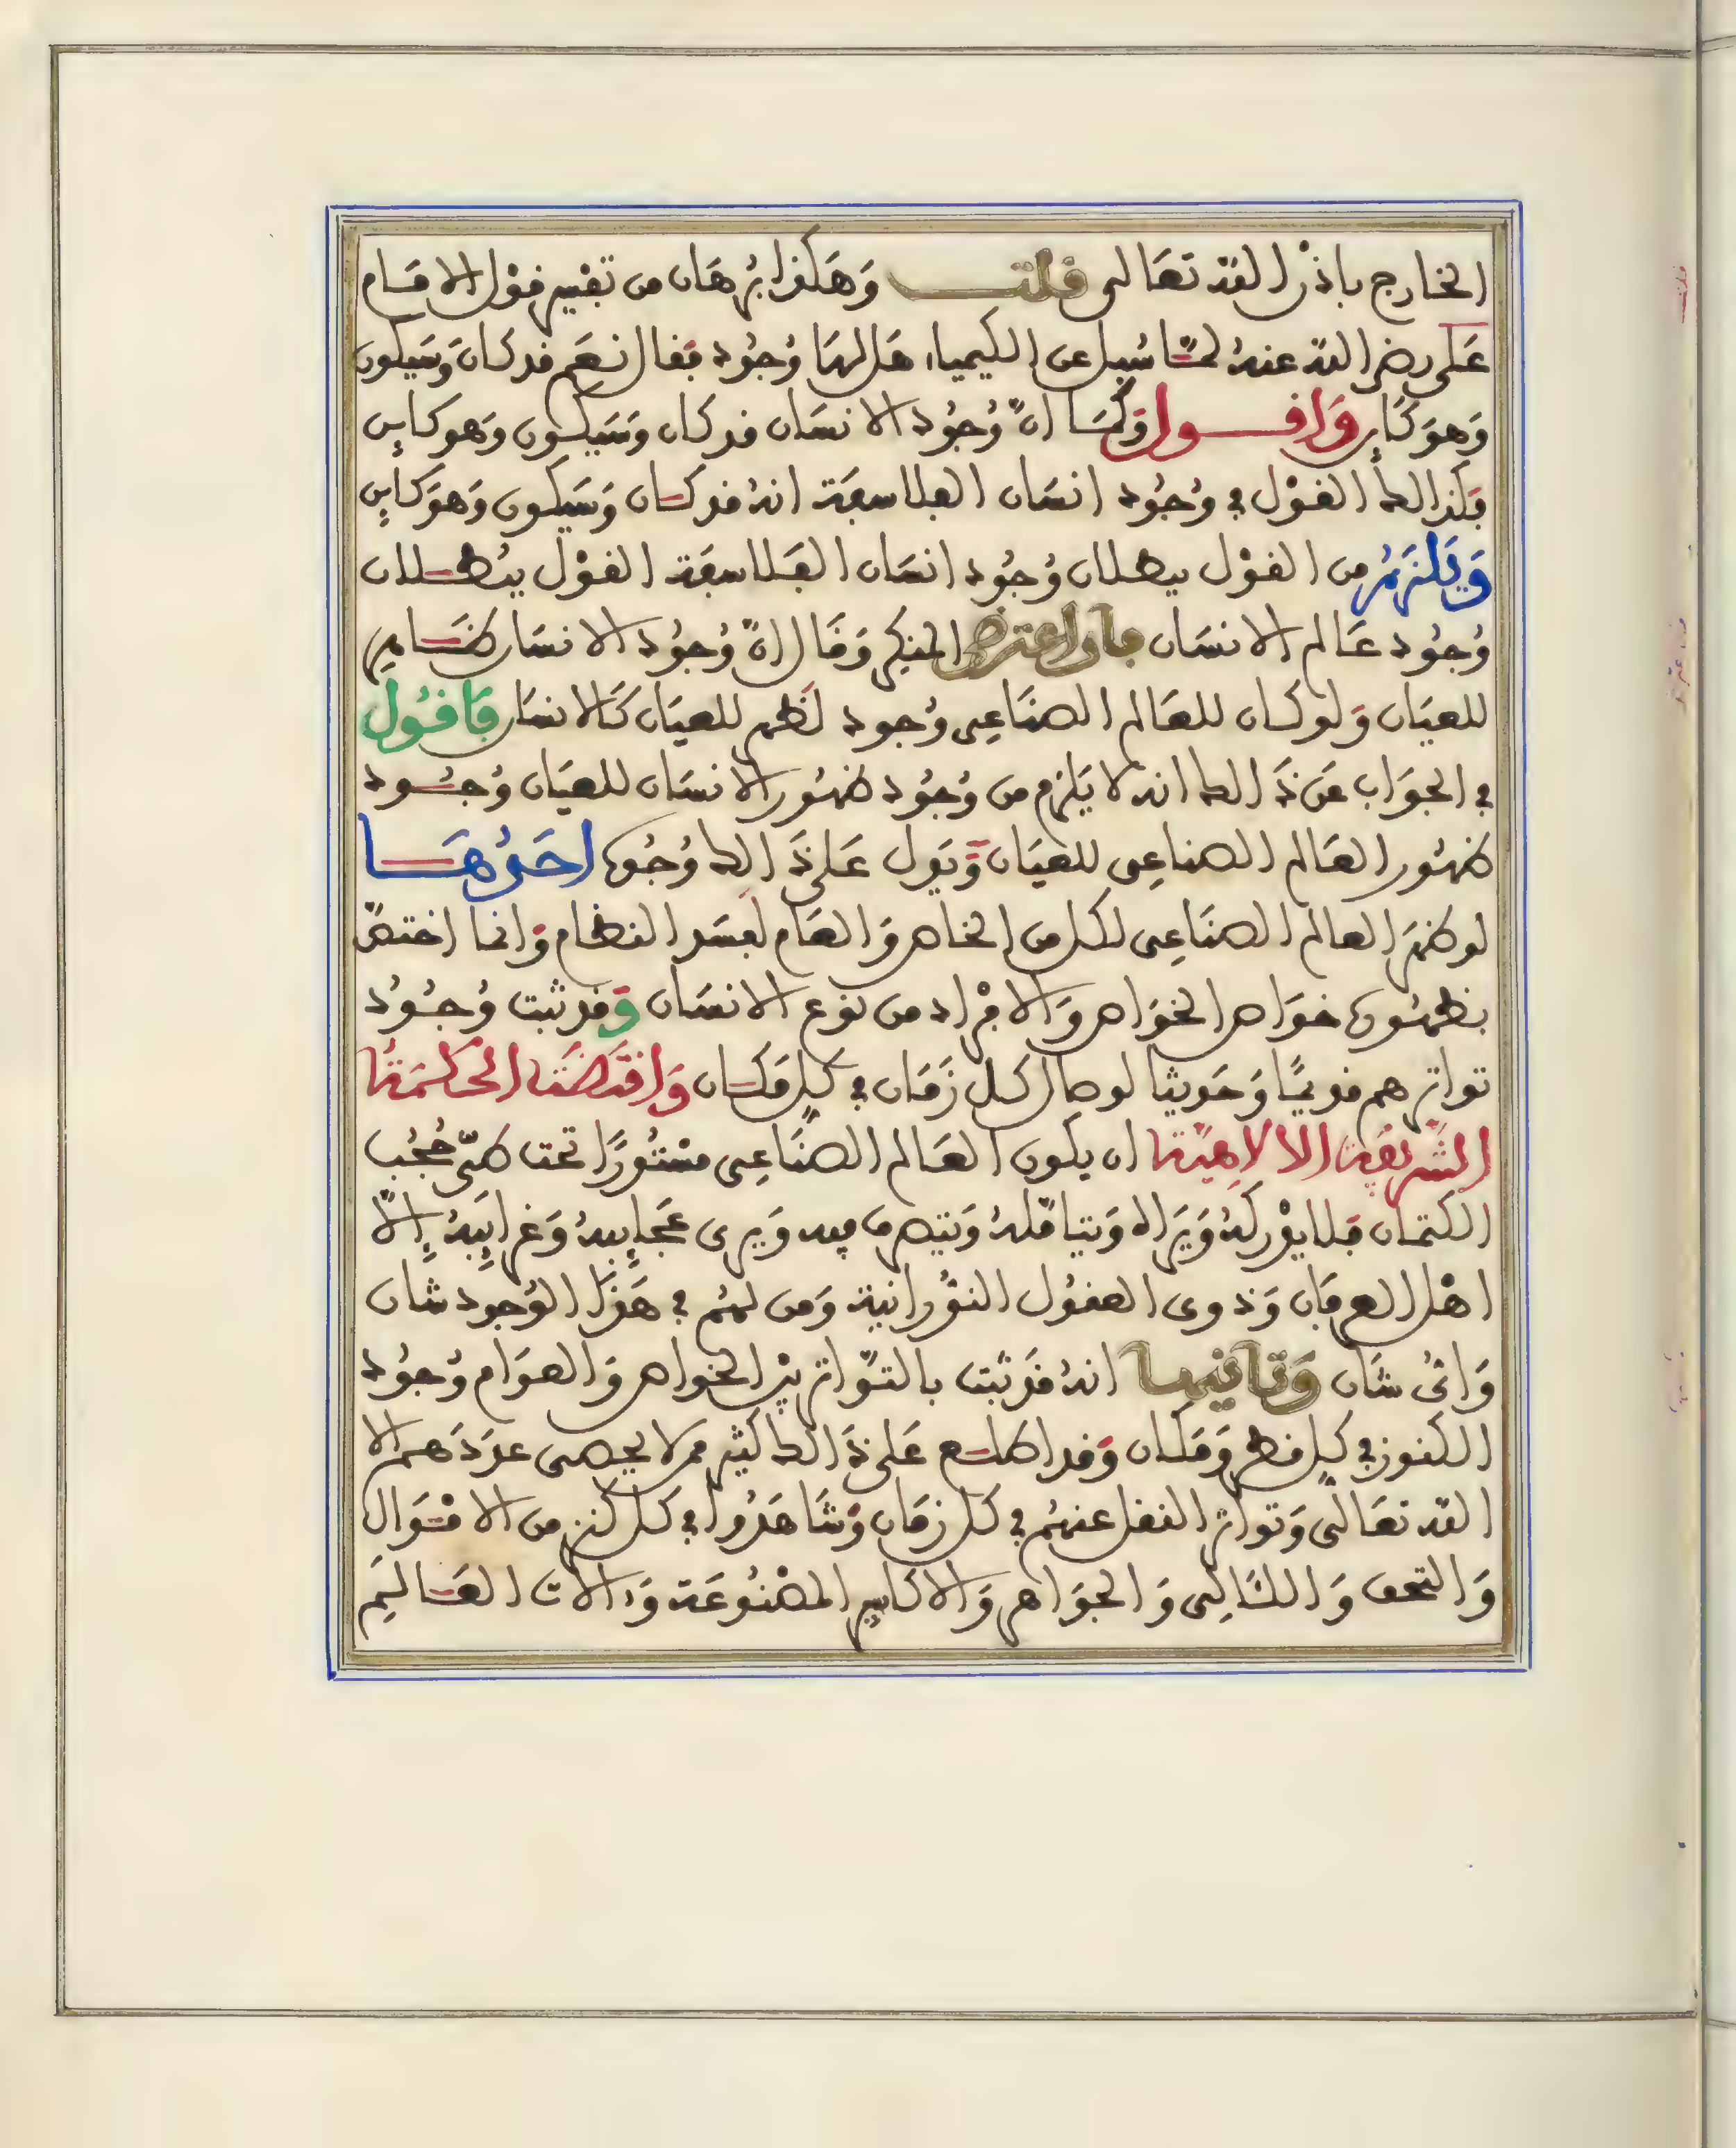 الخارج باذن الله تعالى قلت وَهَكذا برهَان من تفسير قوْل الامَام
عَلى رضى الله عنهُ لمّا سُيل عن الكيمياء هَل لهَا وُجُود فقال نعَم قد كانَ وَسَيكون
وَهوَ كَاين وَاقول وَكمَا انّ وُجُود الانسَان قد كان وَسَيكون وَهو كاين
فكذالك القوْل في وُجُود انسَان الفلاسفة انهُ قد كان وَسَيكون وَهوَ كاين
وَيَلزَمُ من القوْل ببطلان وُجُود انسَان الفَلاسفَة القوْل ببُطلان
وُجُود عَالم الانسَان فان اعترض المنكر وَقَال انّ وُجُود الانسَان ظَاهر
للعيَان وَلو كان للعَالم الصنَاعِى وُجود لَظهر للعيَان كَالانسَان فَاقُول
في الجوَاب عَن ذَالك انه لا يَلزم من وُجُود ظهُور الانسَان للعيَان وُجُود
ظهُور العَالم الصناعِى للعيَان وَيَدل عَلى ذَالك وُجُوه احَدُهَا
لو ظهَر العالم الصنَاعِى لكل من الخاص وَالعَام لَفسَد النظام وَانما اختصّ
بظهُوره خوَاص الخوَاص وَالافْراد من نوع الانسَان وَقد ثبت وُجُود
تواترهم قديمًا وَحَديثا لوصال كل زَمَان في كل مَكان وَاقتَضَت الحكمَة
الشريفة الالاهيّة ان يكون العَالم الصنَاعِى مسْتُورًا تحت طىّ حُجُب
الكتمان فلا يدْركهُ وَيَراه وَيتامّلهُ وَيتصرف فيه وَيرى عَجَايِبهُ وَغرايِبَهُ إلاّ
اهْل العرفَان وَذوى العقُول النوُّرانية وَمن لهُم في هَذَا الوُجود شان
وَاىُّ شَان وَثانيها انهُ قَد ثبت بالتوّاتر بيْن الخواص وَالعوَام وُجُود
الكنوز في كل قطر وَمَكان وَقد اطلع عَلى ذَالك كثير ممن لا يحصى عدَدَهم الا
الله تعَالى وَتواتر النقل عنهُم في كل زمَان وَشَاهَدُوا في كل كنز من الامْوَال
وَالتحف وَاللئَالِى وَالجوَاهر وَالاكاسير المصْنُوعَة وَءالات العَالِيَم